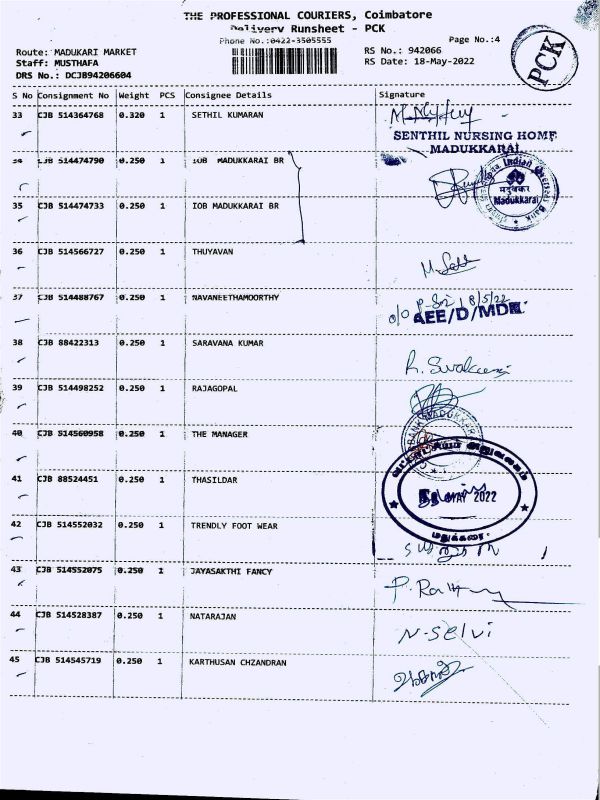 THE PROFESSIONAL COURIERS, Coimbatore
Delivery Runsheet - PCK
Phone No.:0422-3505555
Page No.:4
PCK
Route: MADUKARI MARKET
RS No.: 942066
Staff: MUSTHAFA
RS Date: 18-May-2022
DRS No.: DCJB94206604
S No Consignment No Weight PCS Consignee Details Signature
33 CJB 514364768 0.320 1 SETHIL KUMARAN
SENTHIL NURSING HOME
MADUKKARAI
34 CJB 514474790 0.250 1 IOB MADUKKARAI BR
Indian Overseas Bank
मदुक्करै
Madukkarai
35 CJB 514474733 0.250 1 IOB MADUKKARAI BR
36 CJB 514566727 0.250 1 THUYAVAN
37 CJB 514488767 0.250 1 NAVANEETHAMOORTHY
18/5/22
o/o AEE/D/MDK
38 CJB 88422313 0.250 1 SARAVANA KUMAR
39 CJB 514498252 0.250 1 RAJAGOPAL
40 CJB 514560958 0.250 1 THE MANAGER
41 CJB 88524451 0.250 1 THASILDAR
வட்டாட்சியர் அலுவலகம்
MAY 2022
மதுக்கரை
42 CJB 514552032 0.250 1 TRENDLY FOOT WEAR
43 CJB 514552075 0.250 1 JAYASAKTHI FANCY
44 CJB 514528387 0.250 1 NATARAJAN
N-Selvi
45 CJB 514545719 0.250 1 KARTHUSAN CHZANDRAN